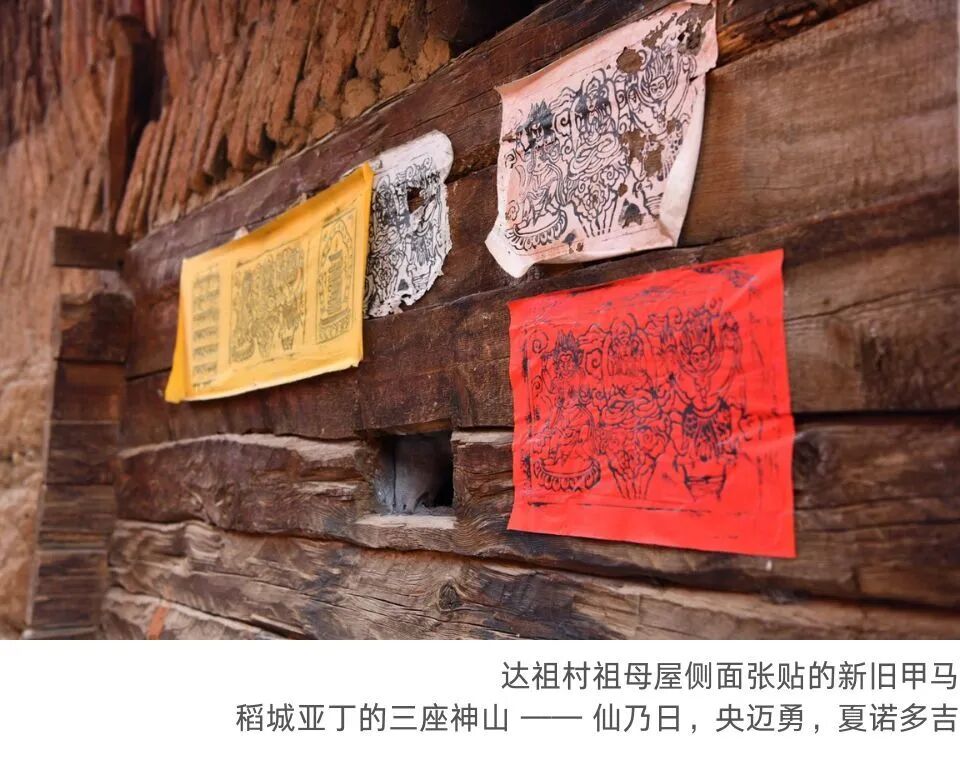 达祖村祖母屋侧面张贴的新旧甲马
稻城亚丁的三座神山 —— 仙乃日，央迈勇，夏诺多吉